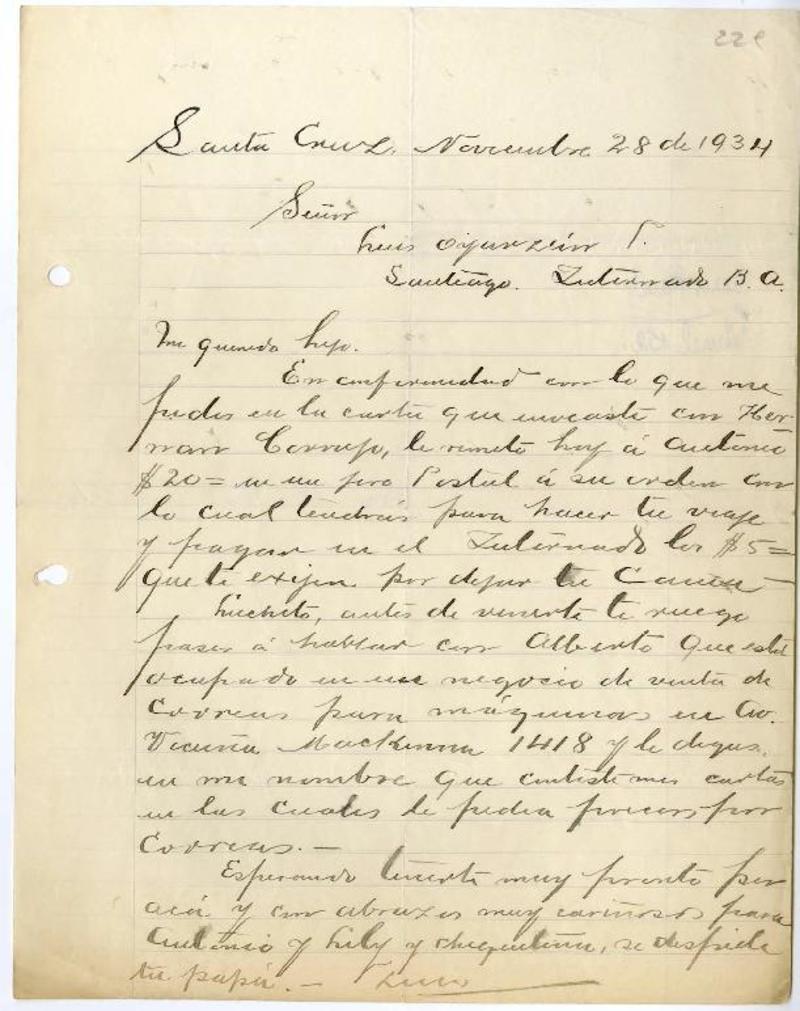 22e
Santa Cruz, Noviembre 28 de 1934
Señor
Luis Oyarzún P.
Santiago. Internado B. A.
Mi querido hijo.
En conformidad con lo que me
pides en la carta que enviaste con Her-
nan Cornejo, le remito hoy á Antonio
$20= en un jiro Postal á su orden con
lo cual tendrás para hacer tu viaje
y pagar en el Internado los $5=
que te exijen por dejar tu Cama—
Luchito, antes de venirte te ruego
pases á hablar con Alberto que está
ocupado en un negocio de venta de
Correas para máquinas en Av.
Vicuña Mackenna 1418 y le digas
en mi nombre que conteste mis cartas
en las cuales le pedia precios por
Correas.—
Esperando tenerte muy pronto por
acá y con abrazos muy cariñosos para
Antonio y Lily y chiquitina, se despide
tu papá.— Luis